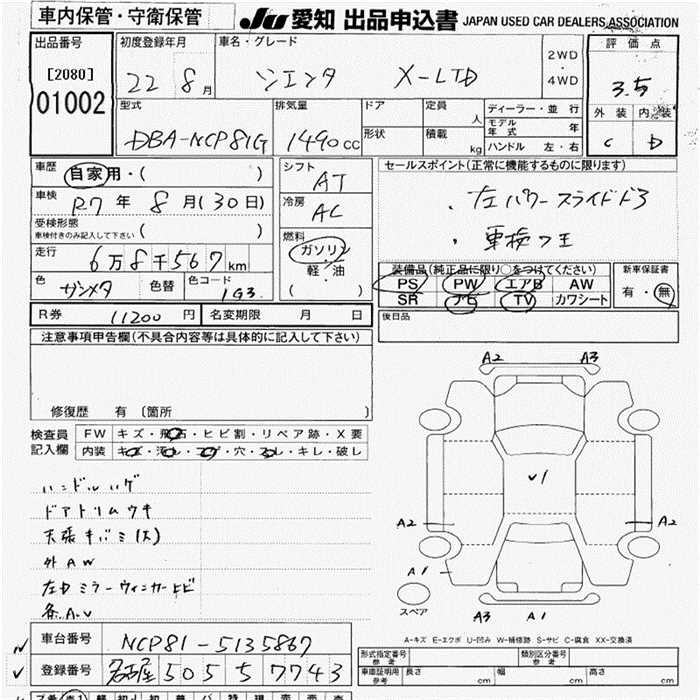 車内保管・守衛保管
JU 愛知 出品申込書 JAPAN USED CAR DEALERS ASSOCIATION
出品番号
[2080]
01002
初度登録年月
22 8月
車名・グレード
シエンタ X-LTD
2WD
・
4WD
評価点
3.5
外装 内装
C D
型式
DBA-NCP81G
排気量
1490cc
ドア
形状
定員 人
積載 kg
ディーラー・並行
モデル年式 年
ハンドル 左・右
車歴
自家用・( )
車検
R7年 8月(30日)
受検形態
車検付きのみ記入して下さい ( )
走行
6万8千567km
色
サンメタ
色替
色コード
1G3
シフト
AT
冷房
AC
燃料
ガソリン
・
軽・油
( )
セールスポイント(正常に機能するものに限ります)
・左パワースライドドア
・車検フ王
装備品(純正品に限り○をつけてください)
PS PW エアB AW
SR ナビ TV カワシート
新車保証書
有・無
R券 11200円
名変期限 月 日
後日品
注意事項申告欄(不具合内容等は具体的に記入して下さい)
修復歴 有〔箇所 〕
検査員記入欄
FW キズ・飛石・ヒビ割・リペア跡・X要
内装 キズ・汚レ・コゲ・穴・スレ・キレ・破レ
ハンドルハゲ
ドアトリムウキ
天張キバミ(大)
外AW
左Dミラーウィンカーヒビ
各A.U
A2 A3
√1
A2 A2
A1
スペア
A3 A1
A-キズ E-エクボ U-凹み W-補修跡 S-サビ C-腐食 XX-交換済
車台番号
NCP81-5135867
登録番号
名古屋 505 ち 7743
形式指定番号
参考
類別区分番号
参考
車庫証明用
参考
長さ cm 幅 cm 高さ cm